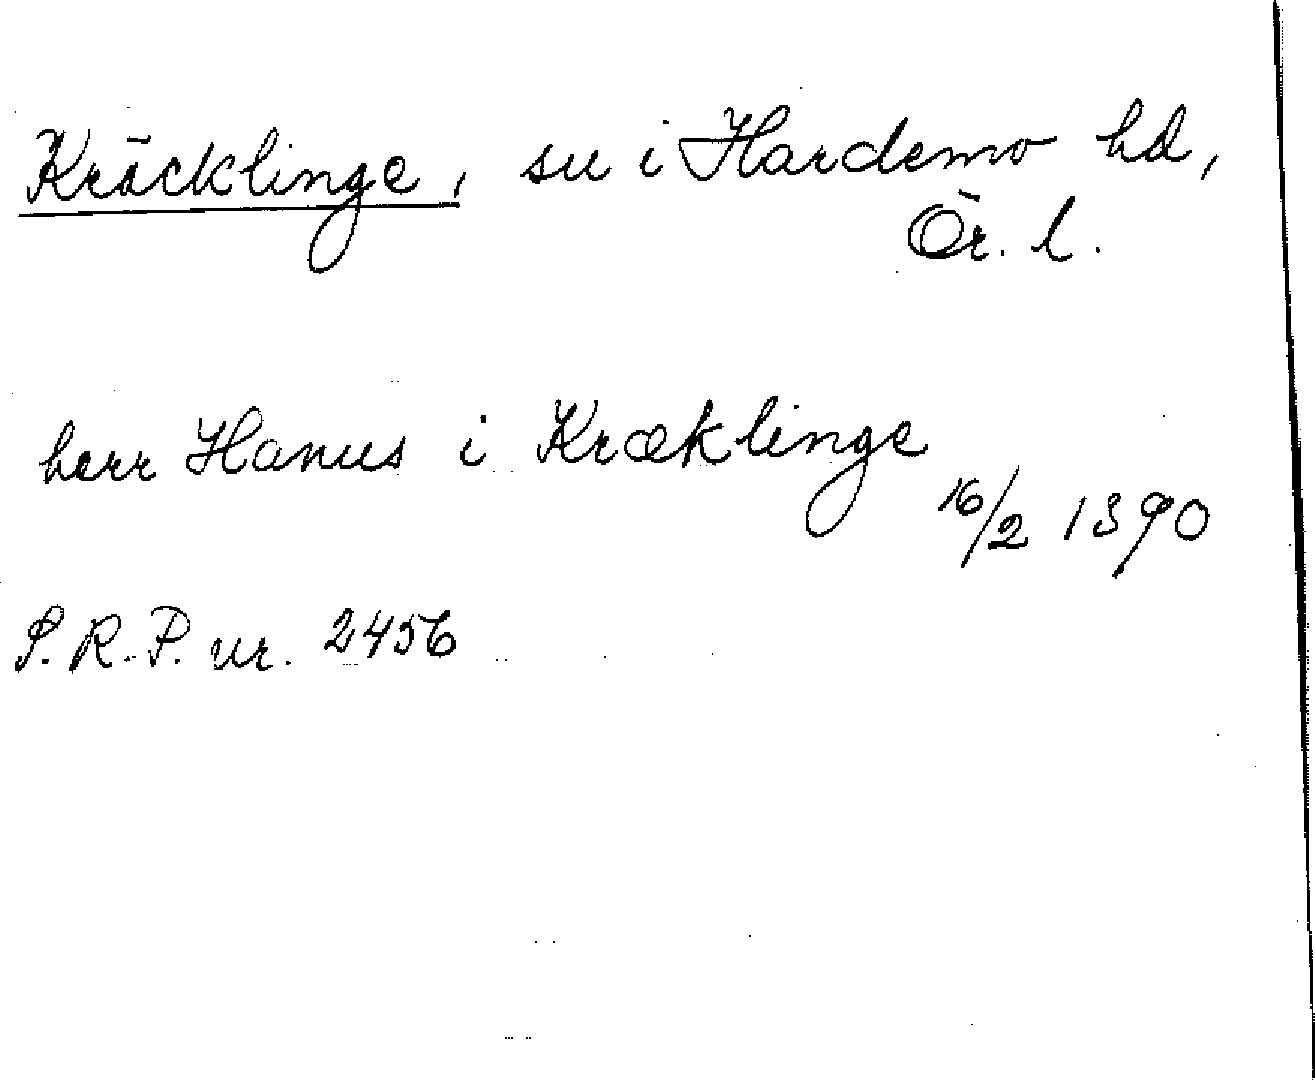 Kräcklinge, sn i Hardemo hd,
Ör. l.
herr Hanus i Kræklinge
16/2 1390
S.R.P. nr. 2456